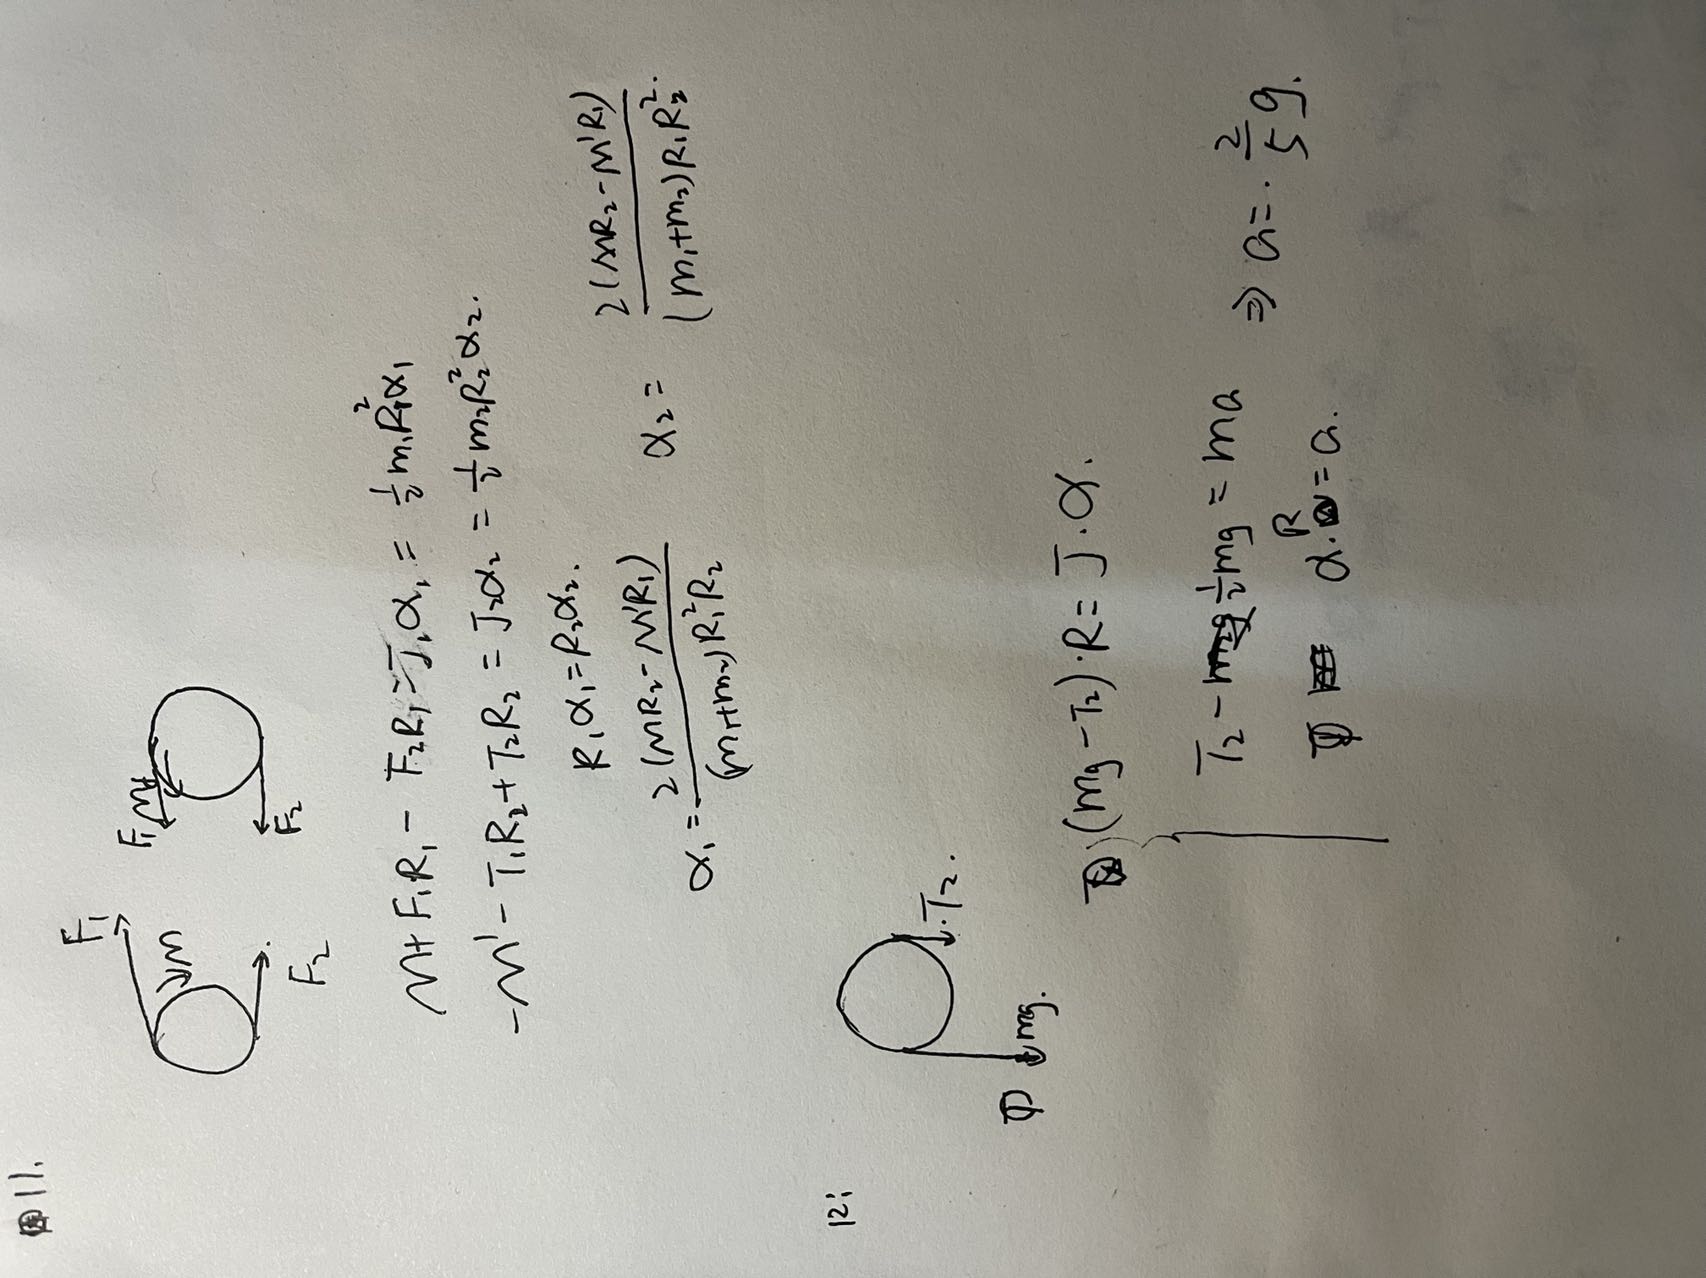 11.
F₁
M
F₂
F₁ Mf
F₂
M+F₁R₁ - F₂R₁ = J₁α₁ = ½m₁R₁²α₁
-M' - T₁R₂ + T₂R₂ = J₂α₂ = ½m₂R₂²α₂.
R₁α₁=R₂α₂.
α₁ = 2(MR₂-M'R₁)/(m₁+m₂)R₁²R₂ α₂ = 2(MR₂-M'R₁)/(m₁+m₂)R₁R₂².
12:
T₂.
mg.
(mg-T₂)·R = J·α.
T₂ - ½mg = ma ⇒ a = 2/5 g.
α·R = a.